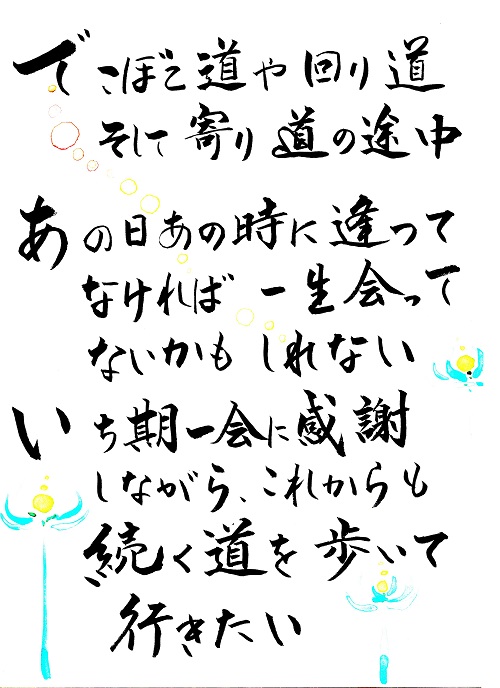 でこぼこ道や回り道
そして寄り道の途中
あの日あの時に逢って
なければ一生会って
ないかもしれない
いち期一会に感謝
しながら、これからも
続く道を歩いて
行きたい